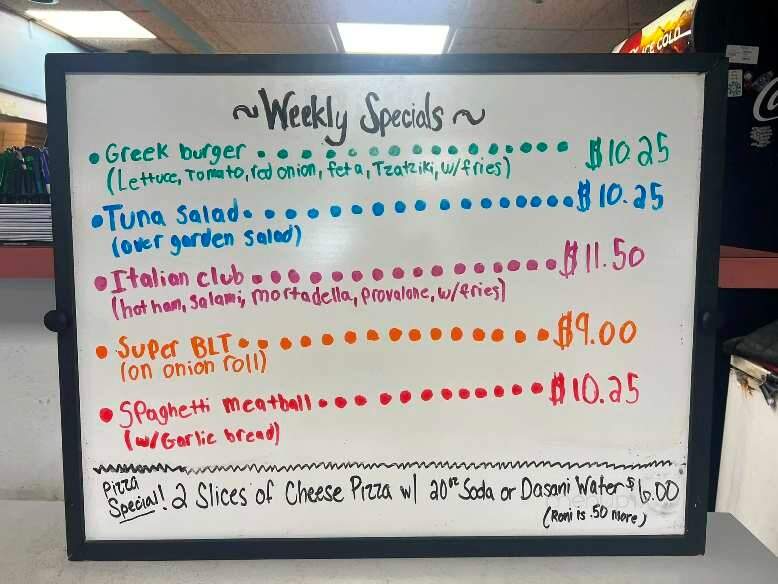 ICE COLD
~ Weekly Specials ~
• Greek burger . . . . . . . . . . . . . . . $10.25
(Lettuce, Tomato, red onion, feta, Tzatziki, w/fries)
• Tuna Salad . . . . . . . . . . . . . . . . . $10.25
(over garden salad)
• Italian club . . . . . . . . . . . . . . . . $11.50
(hot ham, Salami, mortadella, Provalone, w/fries)
• Super BLT . . . . . . . . . . . . . . . $9.00
(on onion roll)
• Spaghetti meatball . . . . . . . . . . . $10.25
(w/Garlic bread)
Pizza Special! 2 Slices of Cheese Pizza w/ 20oz Soda or Dasani Water $6.00
(Roni is .50 more)